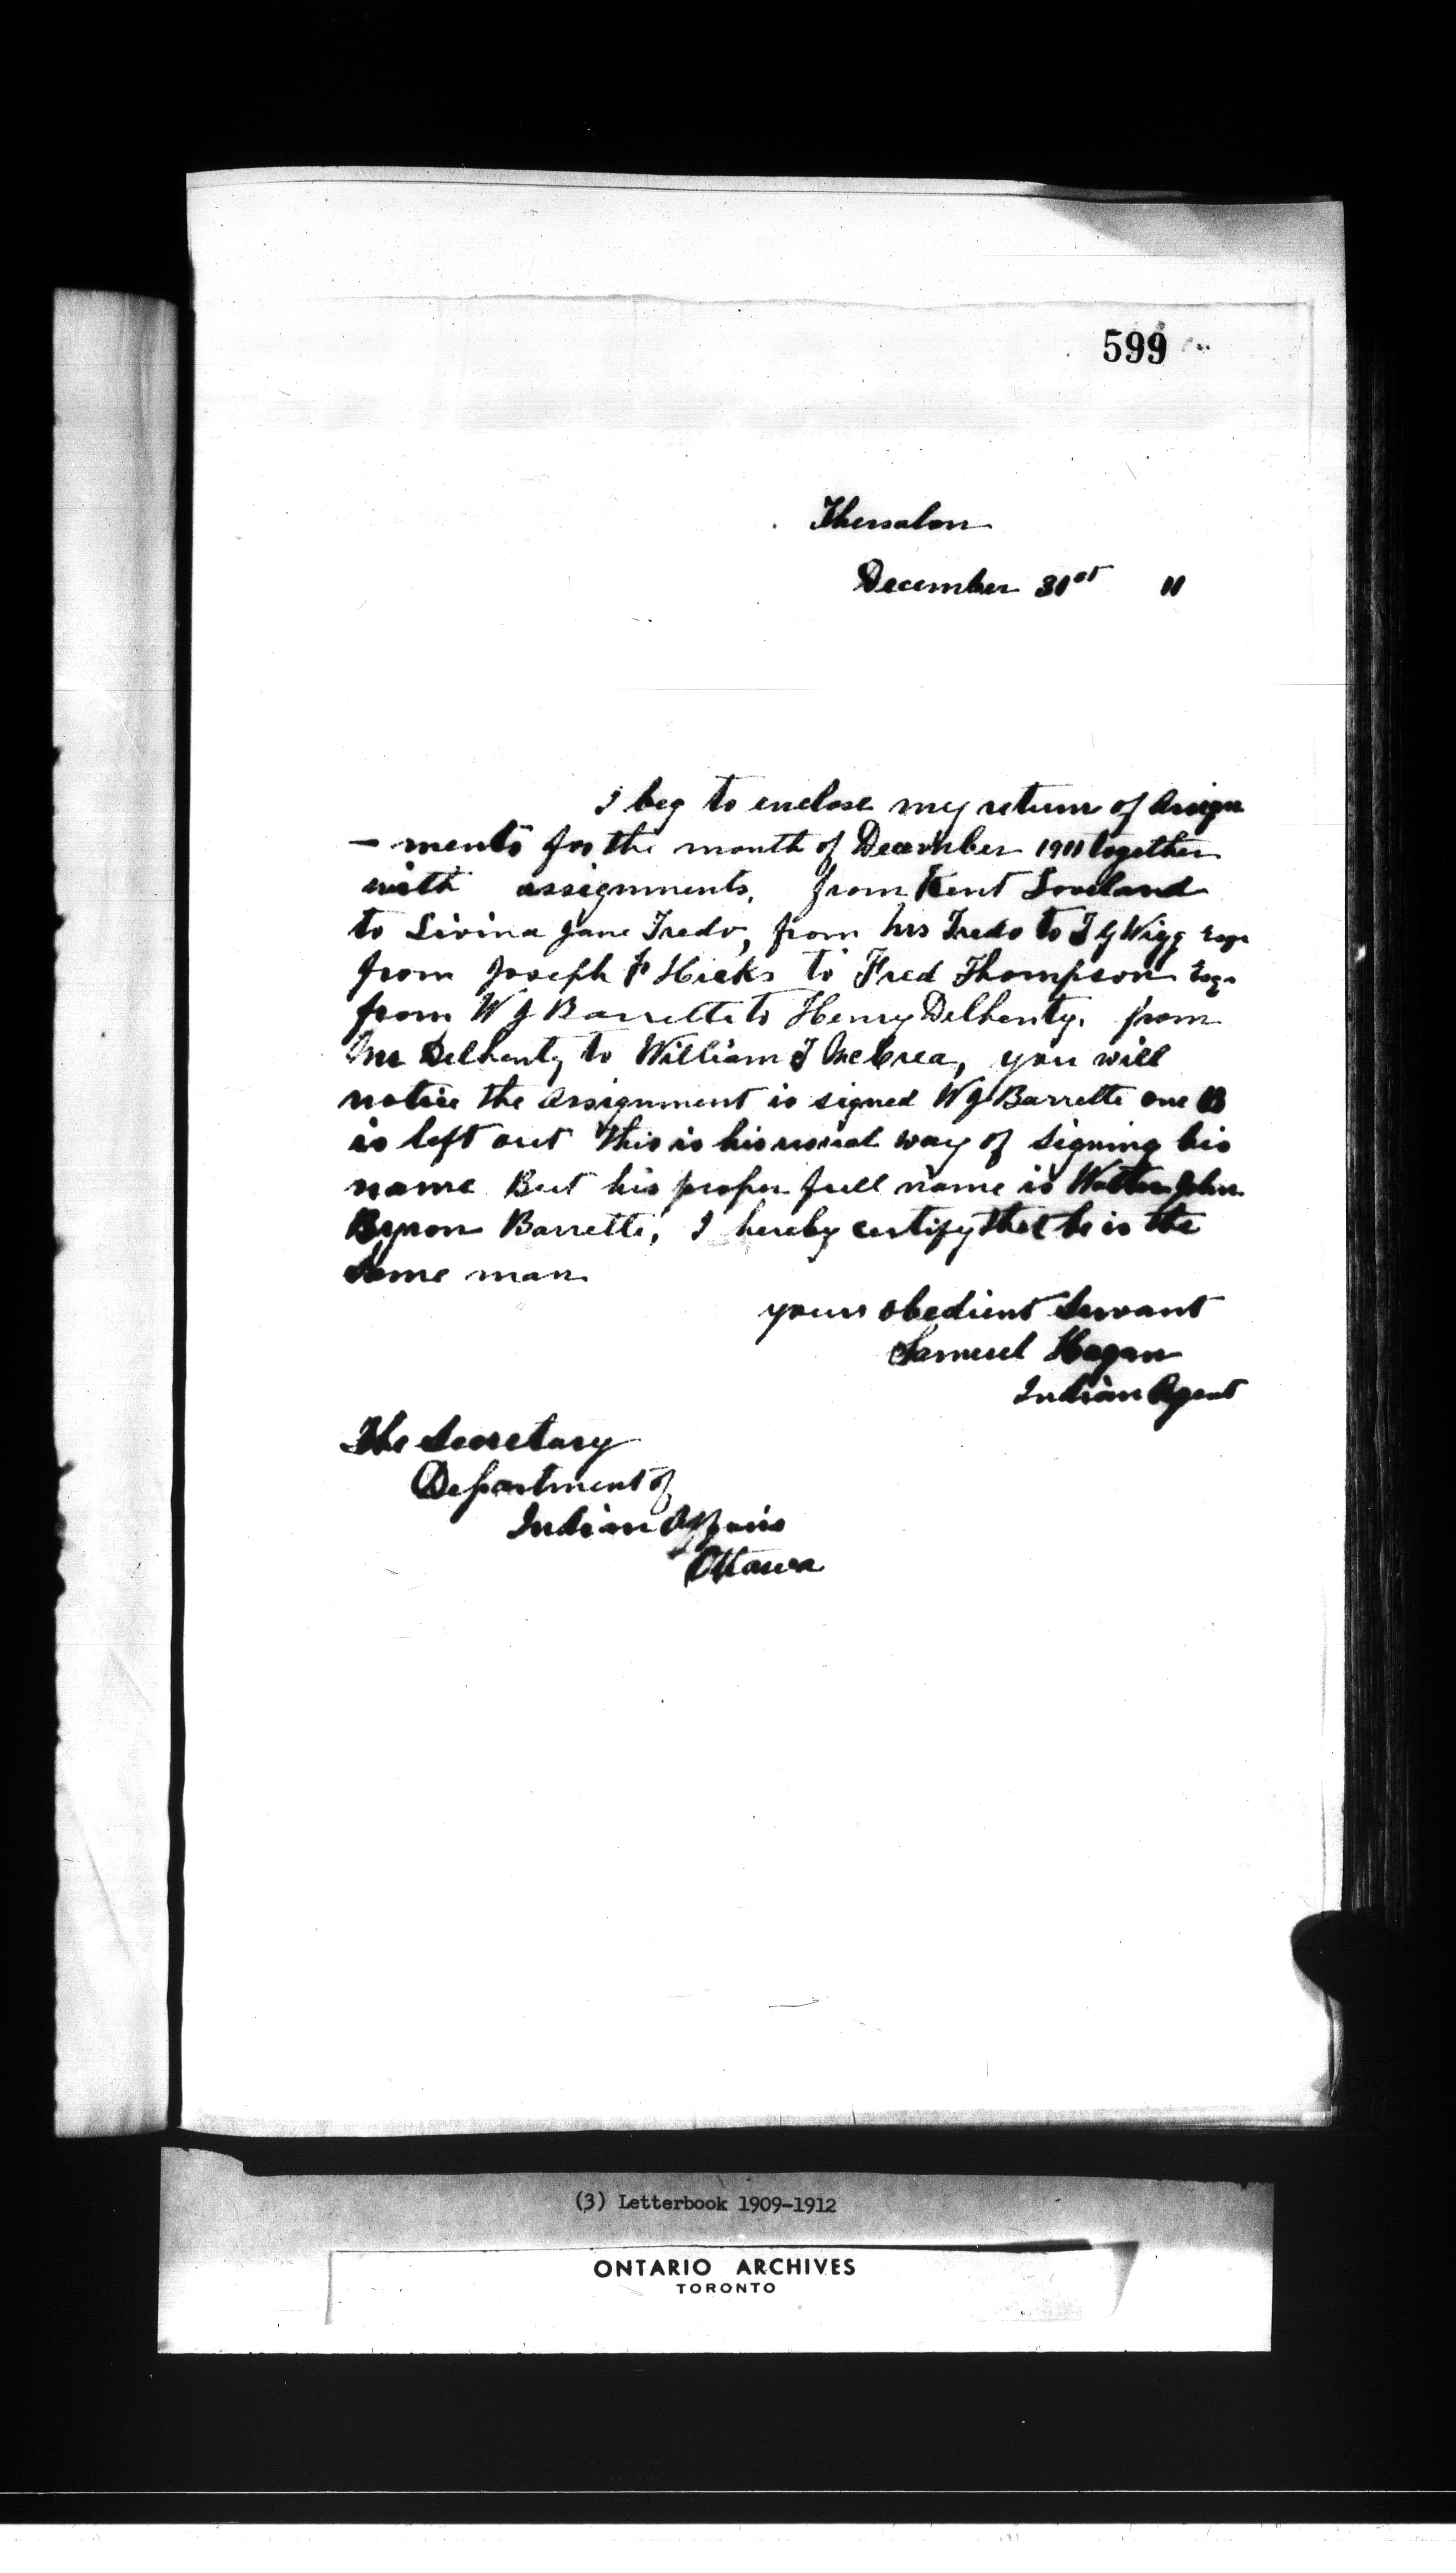 599
Thessalon
December 31st 11
I beg to enclose my return of Assign
- ments for the month of December 1911 together
with assignments, from Kent Loveland
to Livina Jane Tredo, from hrs Tredo to T G Wigg Esqr
from Joseph F Hicks to Fred Thompson Esqr
from W J Barrette to Henry Delhenty. from
Mr Delhenty to William J McCrea, you will
notice the assignment is signed W J Barrette one B
is left out this is his usual way of signing his
name But his proper full name is Walter John
Byron Barrette, I hereby certify that he is the
same man
your obedient Servant
Samuel Hagan
Indian Agent
The Secretary
Department of
Indian Affairs
Ottawa
(3) Letterbook 1909-1912
ONTARIO ARCHIVES
TORONTO